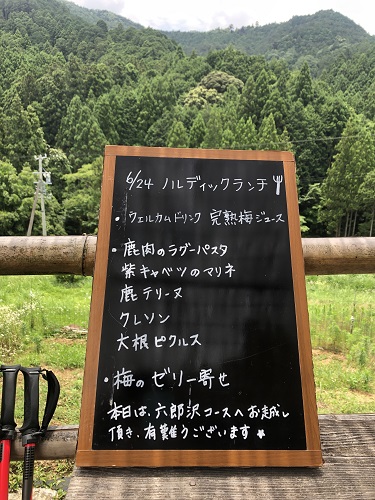 6/24 ノルディックランチ
・ウェルカムドリンク 完熟梅ジュース
・鹿肉のラグーパスタ
紫キャベツのマリネ
鹿テリーヌ
クレソン
大根ピクルス
・梅のゼリー寄せ
本日は、六郎沢コースへお越し
頂き、有難うございます★